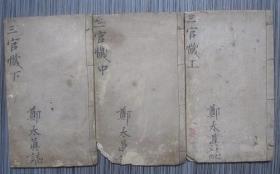 三官懺上
鄭泰真記
三官懺中
鄭泰真記
三官懺下
鄭泰真記